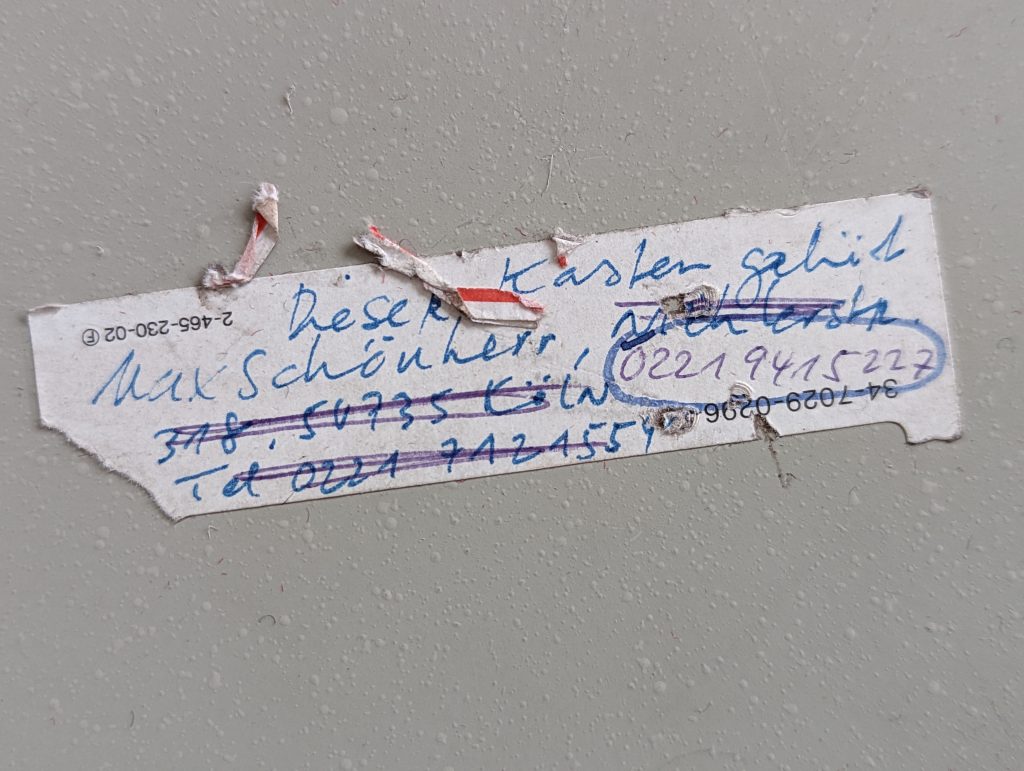 Dieser Kasten gehört
Max Schönherr,
318, 50735 Köln
Tel 0221 7121554
0221 9415227
2-465-230-02 Ⓔ
34-7029-0296